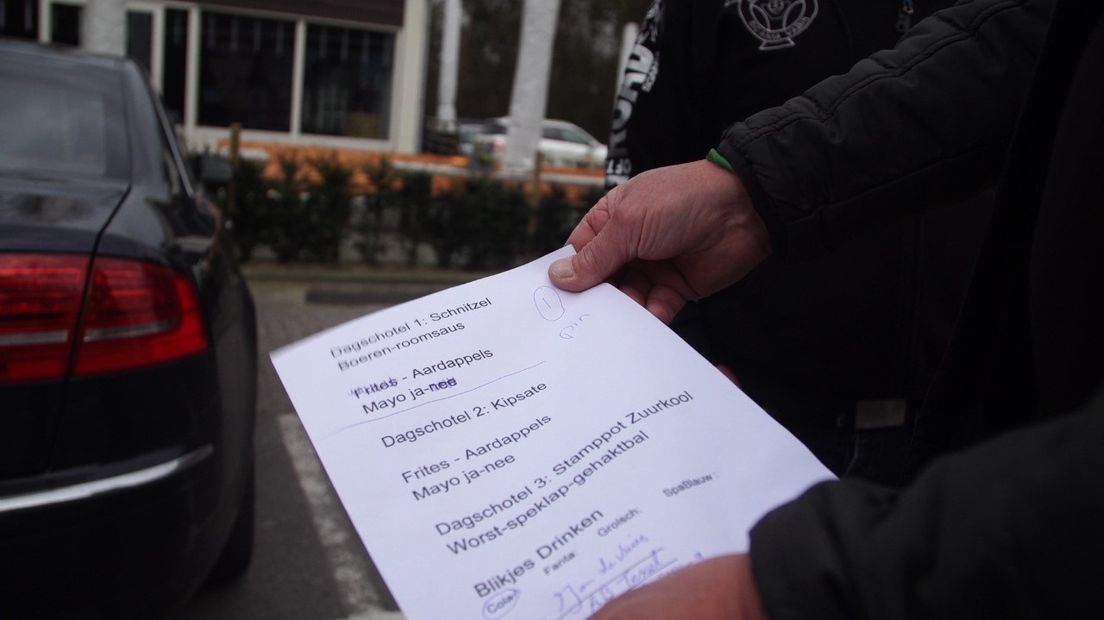 Dagschotel 1: Schnitzel
Boeren-roomsaus
1
pin
Frites - Aardappels
Mayo ja-nee
Dagschotel 2: Kipsate
Frites - Aardappels
Mayo ja-nee
Dagschotel 3: Stamppot Zuurkool
Worst-speklap-gehaktbal
Blikjes Drinken
Cola: Fanta: Grolsch: SpaBlauw: